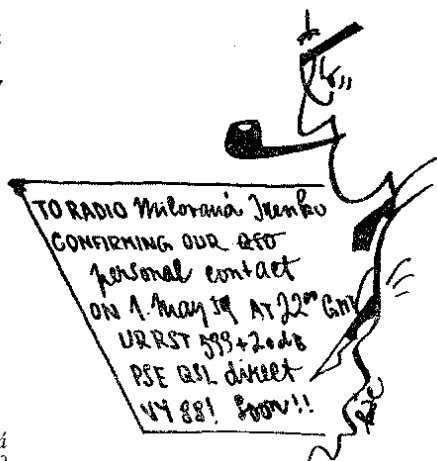 TO RADIO Milovaná Irenko
CONFIRMING OUR QSO
personal contact
ON 1. May 59 AT 22⁰⁰ GMT
UR RST 599+20db
PSE QSL direct
VY 88! soon!!
á